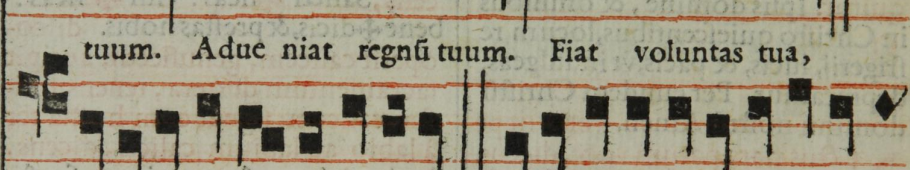 tuum. Adue niat regnũ tuum. Fiat voluntas tua,